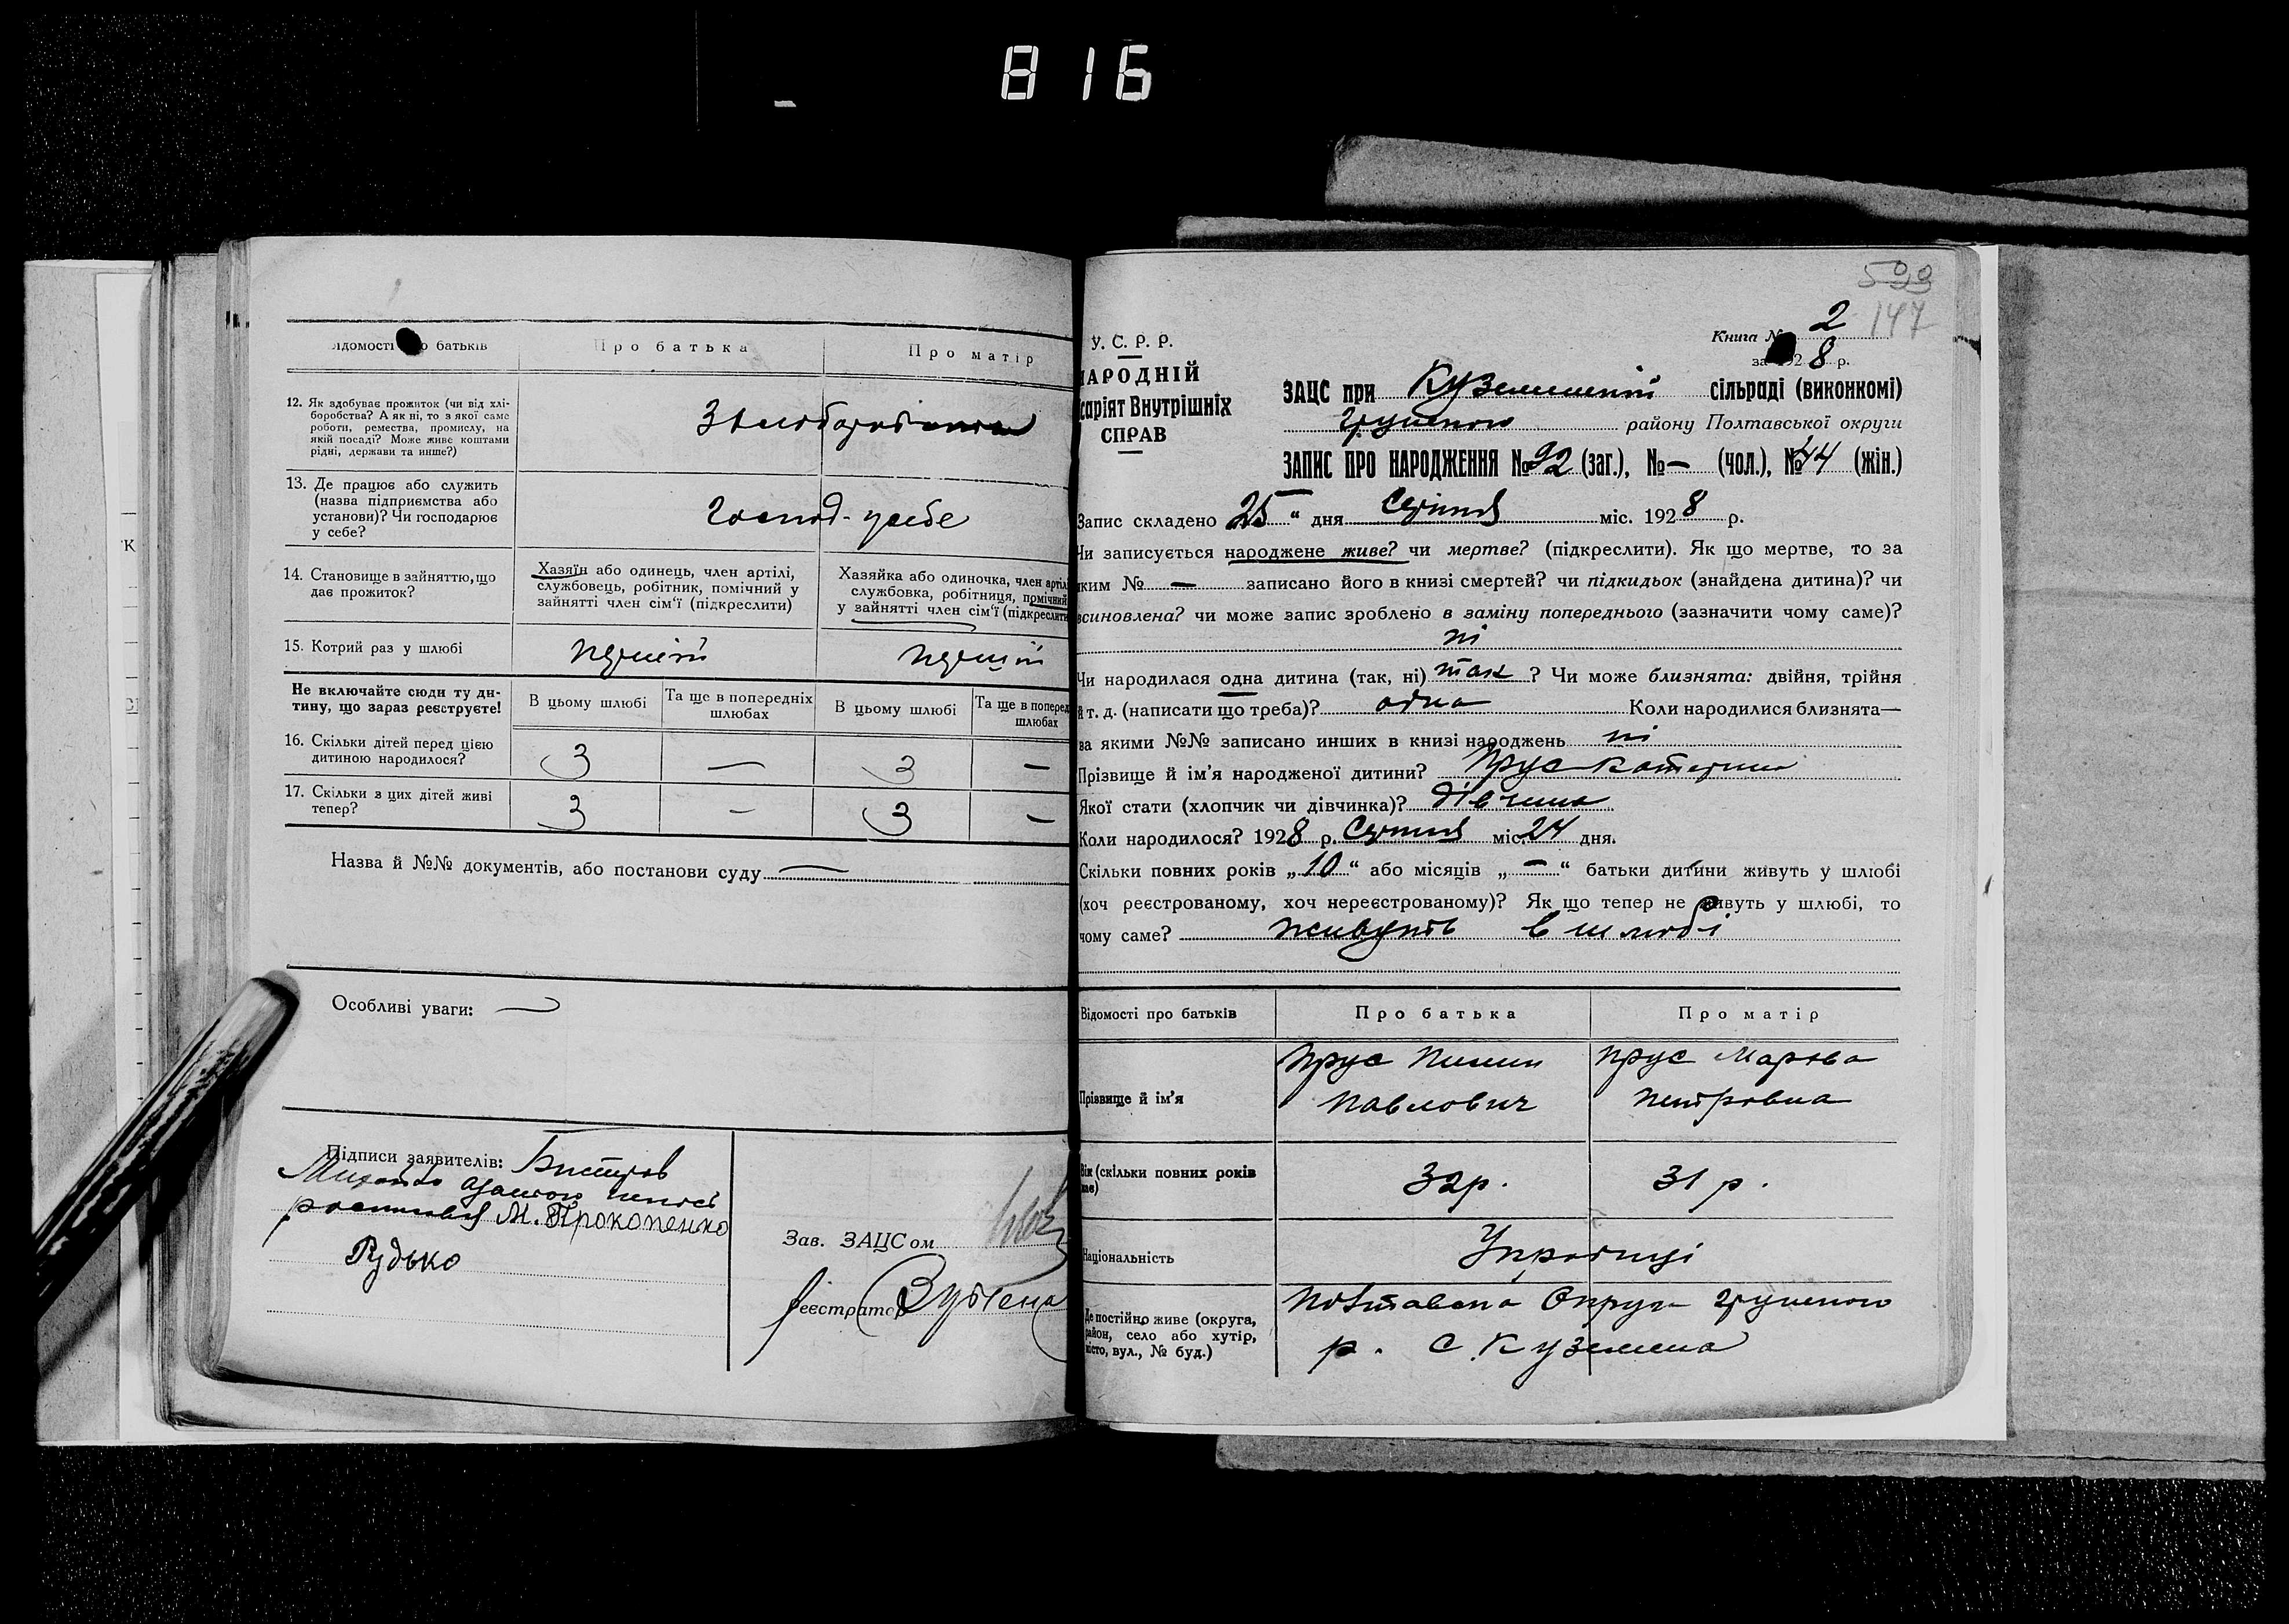 816
Відомості про батьків
Про батька
Про матір
12. Як здобуває прожиток (чи від хлі-
боробства? А як ні, то з якої саме
роботи, ремества, промислу, на
якій посаді? Може живе коштами
рідні, держави та инше?)
13. Де працює або служить
(назва підприємства або
установи)? Чи господарює
у себе?
Господ- усебе
14. Становище в зайняттю, що
дає прожиток?
Хазяїн або одинець, член артілі,
службовець, робітник, помічний у
зайнятті член сім'ї (підкреслити)
Хазяйка або одиночка, член артілі
службовка, робітниця, помічний
у зайнятті член сім'ї (підкреслити
15. Котрий раз у шлюбі
перший
перший
Не включайте сюди ту ди-
тину, що зараз реєструєте!
В цьому шлюбі
Та ще в попередніх
шлюбах
В цьому шлюбі
Та ще в поперед
шлюбах
16. Скільки дітей перед цією
дитиною народилося?
3 — 3 —
17. Скільки з цих дітей живі
тепер?
3 - 3 -
Назва й №№ документів, або постанови суду —
Особливі уваги: —
Підписи заявителів:
М. Прокопенко
Рудько
Зав. ЗАЦСом
Реєстратор
599
147
Книга № 2
за 1928 р.
У. С. Р. Р.
НАРОДНІЙ
саріят Внутрішніх
СПРАВ
ЗАЦС при Куземинській сільраді (виконкомі)
Грунського району Полтавської округи
ЗАПИС ПРО НАРОДЖЕННЯ № 92 (заг.), № — (чол.), № 44 (жін.)
Запис складено 25 " дня Серпня міс. 1928 р.
Чи записується народжене живе? чи мертве? (підкреслити). Як що мертве, то за
яким № — записано його в книзі смертей? чи підкидьок (знайдена дитина)? чи
всиновлена? чи може запис зроблено в заміну попереднього (зазначити чому саме)?
ні
Чи народилася одна дитина (так, ні) так ? Чи може близнята: двійня, трійня
й т. д. (написати що треба)? одна Коли народилися близнята—
за якими №№ записано инших в книзі народжень ні
Прізвище й ім'я народженої дитини? Прус Катерина
Якої стати (хлопчик чи дівчинка)? дівчина
Коли народилося? 1928 р. Серпня міс. 24 дня.
Скільки повних років „ 10 " або місяців „ — " батьки дитини живуть у шлюбі
(хоч реєстрованому, хоч нереєстрованому)? Як що тепер не живуть у шлюбі, то
чому саме? живуть в шлюбі
Відомості про батьків
Про батька
Про матір
Прізвище й ім'я
Прус Пимин
Павлович
Прус Марфа
Петровна
Вік (скільки повних років
має)
32 р.
31 р.
Національність
Українці
Де постійно живе (округа,
район, село або хутір,
місто, вул., № буд.)
Полтавська Округа Грунського
р. с. Куземена